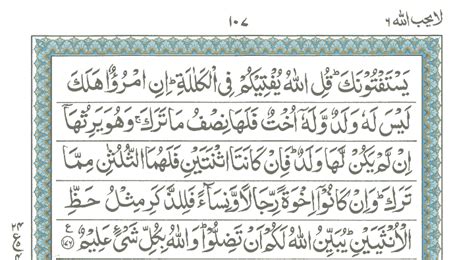 لا يحب الله ٦
١٠٧
يَسْتَفْتُوْنَكَ ؕ قُلِ اللّٰهُ يُفْتِيْكُمْ فِي الْكَلٰلَةِ ؕ اِنِ امْرُؤٌا هَلَكَ
لَيْسَ لَهٗ وَلَدٌ وَّلَهٗۤ اُخْتٌ فَلَهَا نِصْفُ مَا تَرَكَ ۚ وَهُوَ يَرِثُهَاۤ
اِنْ لَّمْ يَكُنْ لَّهَا وَلَدٌ ؕ فَاِنْ كَانَتَا اثْنَتَيْنِ فَلَهُمَا الثُّلُثٰنِ مِمَّا
تَرَكَ ؕ وَاِنْ كَانُوْۤا اِخْوَةً رِّجَالًا وَّنِسَآءً فَلِلذَّكَرِ مِثْلُ حَظِّ
الْاُنْثَيَيْنِ ؕ يُبَيِّنُ اللّٰهُ لَكُمْ اَنْ تَضِلُّوْا ؕ وَاللّٰهُ بِكُلِّ شَيْءٍ عَلِيْمٌ ۧ ﴿١٧٦﴾